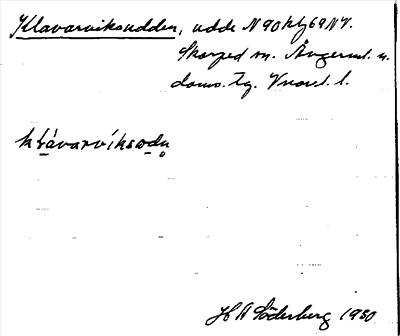 Klavarviksudden, udde N 90 kbj 69 NV.
Skorped sn. Ångerml. n.
doms. tg.
klávarvíksodn
H A Söderberg 1930